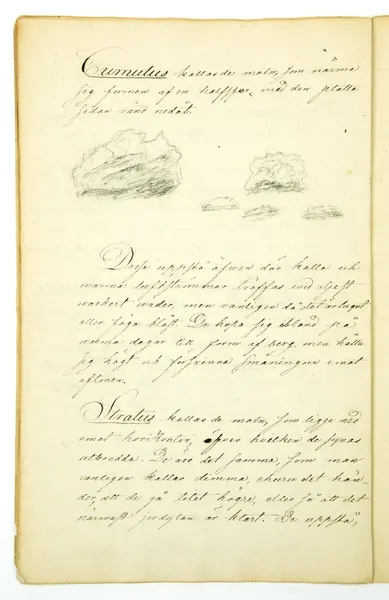 Cumulus kallas de moln, som närma
sig formen af en halfsfer, med den platta
sidan vänd nedåt.
Dessa uppstå äfven där kalla och
varma luftströmmar träffas vid
vackert väder, men vanligen då det är lugnt
eller föga blåst. De hopa sig ibland på
varma dagar till form af berg, men hålla
sig högt och försvinna småningom emot
aftonen.
Stratus kallas de moln, som ligga ned
emot horizonten, öfver hvilken de synas
utbredda. De äro det samma, som man
vanligen kallar dimma, ehuru det hän-
der, att de gå litet högre, eller så att det
närmast jordytan är klart. De uppstå,